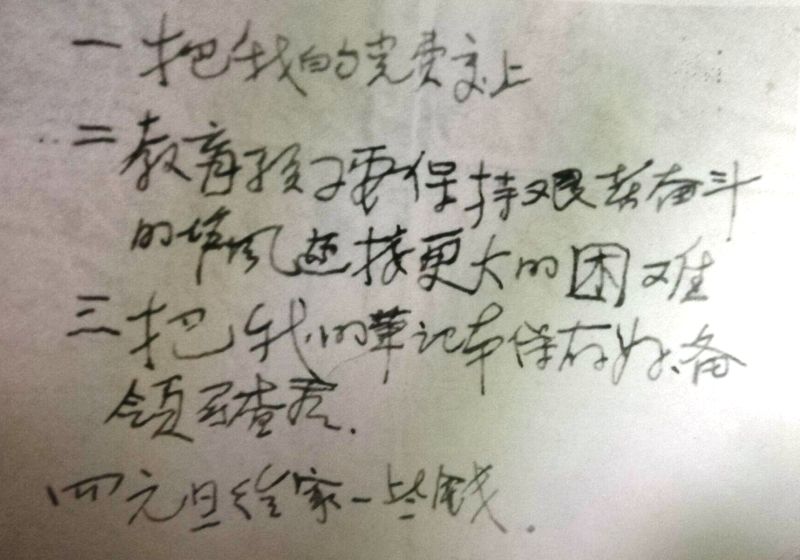 一 把我的党费交上
二 教育孩子要保持艰苦奋斗
的作风迎接更大的困难
三 把我的笔记本保存好、备
领导查看.
四 元旦给家一些钱.